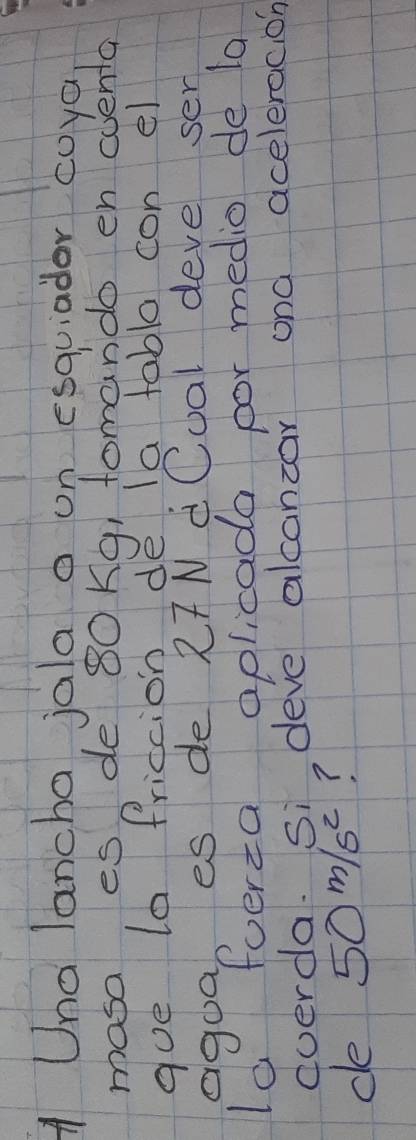 Una lancha jala a un esquiador cuya
masa es de 80 Kg, tomando en cuenta
que la fricción de la tabla con el
agua es de 27N ¿Cual deve ser
la fuerza aplicada por medio de la
cuerda. Si deve alcanzar una aceleración
de 50 m/s²?